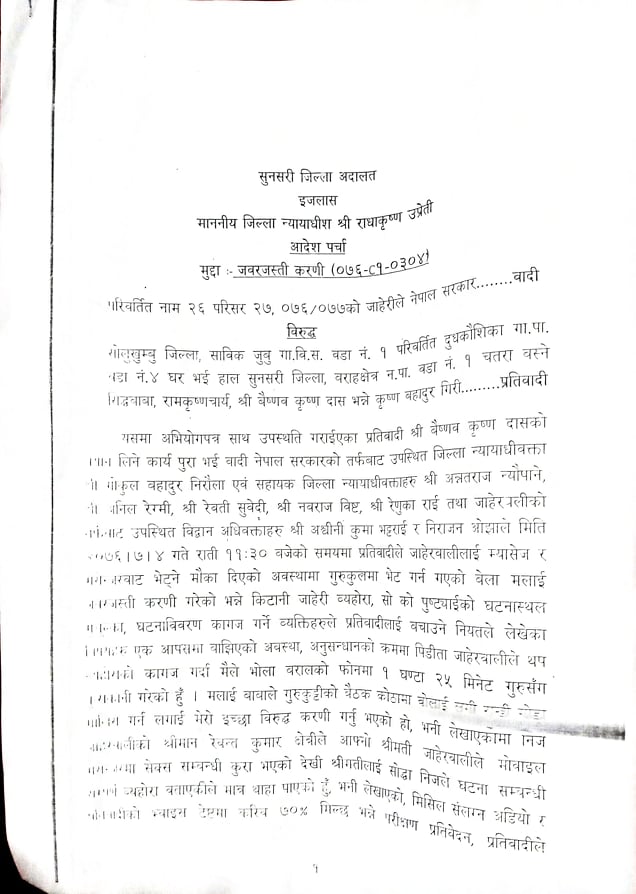 सुनसरी जिल्ला अदालत
इजलास
माननीय जिल्ला न्यायाधीश श्री राधाकृष्ण उप्रेती
आदेश पर्चा
मुद्दा :- जवरजस्ती करणी (०७६-C१-०३०४)
परिवर्तित नाम २६ परिसर २७, ०७६/०७७को जाहेरीले नेपाल सरकार........वादी
विरुद्ध
सोलुखुम्बु जिल्ला, साविक जुबु गा.वि.स. वडा नं. १ परिवर्तित दुधकौशिका गा.पा.
वडा नं.४ घर भई हाल सुनसरी जिल्ला, वराहक्षेत्र न.पा. वडा नं. १ चतरा बस्ने
सिद्धबाबा, रामकृष्णचार्य, श्री बैष्णव कृष्ण दास भन्ने कृष्ण बहादुर गिरी.........प्रतिवादी
यसमा अभियोगपत्र साथ उपस्थति गराईएका प्रतिवादी श्री बैष्णव कृष्ण दासको
बयान लिने कार्य पुरा भई वादी नेपाल सरकारको तर्फबाट उपस्थित जिल्ला न्यायाधीवक्ता
श्री गोकुल बहादुर निरौला एवं सहायक जिल्ला न्यायाधीवक्ताहरु श्री अन्नतराज न्यौपाने,
श्री अनिल रेग्मी, श्री रेवती सुवेदी, श्री नवराज विष्ट, श्री रेणुका राई तथा जाहेरवालीको
उपस्थित विद्वान अधिवक्ताहरु श्री अश्वीनी कुमा भट्टराई र निराजन ओझाले मिति
२०७६।७।४ गते राती ११:३० वजेको समयमा प्रतिवादीले जाहेरवालीलाई म्यासेज र
भेट्ने मौका दिएको अवस्थामा गुरुकुलमा भेट गर्न गएको बेला मलाई
जवरजस्ती करणी गरेको भन्ने किटानी जाहेरी व्यहोरा, सो को पुष्ट्याईको घटनास्थल
घटनाविवरण कागज गर्ने व्यक्तिहरुले प्रतिवादीलाई बचाउने नियतले लेखेका
एक आपसमा वाझिएको अवस्था, अनुसन्धानको क्रममा पिडीता जाहेरवालीले थप
कागज गर्दा मैले भोला बरालको फोनमा १ घण्टा २५ मिनेट गुरुसँग
गरेको हुँ । मलाई बाबाले गुरुकुटीको बैठक कोठामा बोलाई
गर्न लगाई मेरो इच्छा विरुद्ध करणी गर्नु भएको हो, भनी लेखाएकोमा निज
जाहेरवालीको श्रीमान रेवन्त कुमार क्षेत्रीले आफ्नो श्रीमती जाहेरवालीले मोबाइल
सेक्स सम्बन्धी कुरा भएको देखी श्रीमतीलाई सोद्धा निजले घटना सम्बन्धी
सम्पूर्ण व्यहोरा बताएकीले मात्र थाहा पाएको हुँ, भनी लेखाएको, मिसिल संलग्न अडियो र
भ्वाइस टेष्टमा करिब ७०% मिल्छ भन्ने परीक्षण प्रतिवेदन, प्रतिवादीले
१